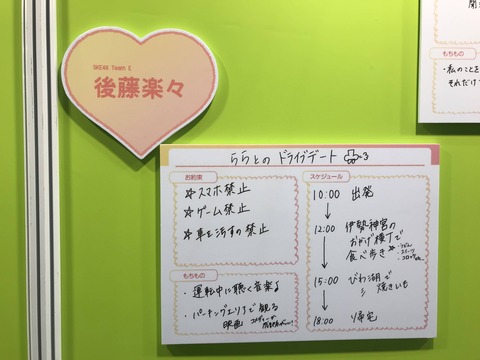 SKE48 Team E
後藤楽々
ららとの ドライブデート
お約束
☆スマホ禁止
☆ゲーム禁止
☆車を汚すの禁止
もちもの
・運転中に聴く音楽♪
・パーキングエリアで観る
映画
スケジュール
10:00 出発
12:00 伊勢神宮の
おかげ横丁で
食べ歩き
・うどん
・スイーツ
・コロッケetc
15:00 びわ湖で
焼きいも
18:00 帰宅
もちもの
・私のことを
それだけ